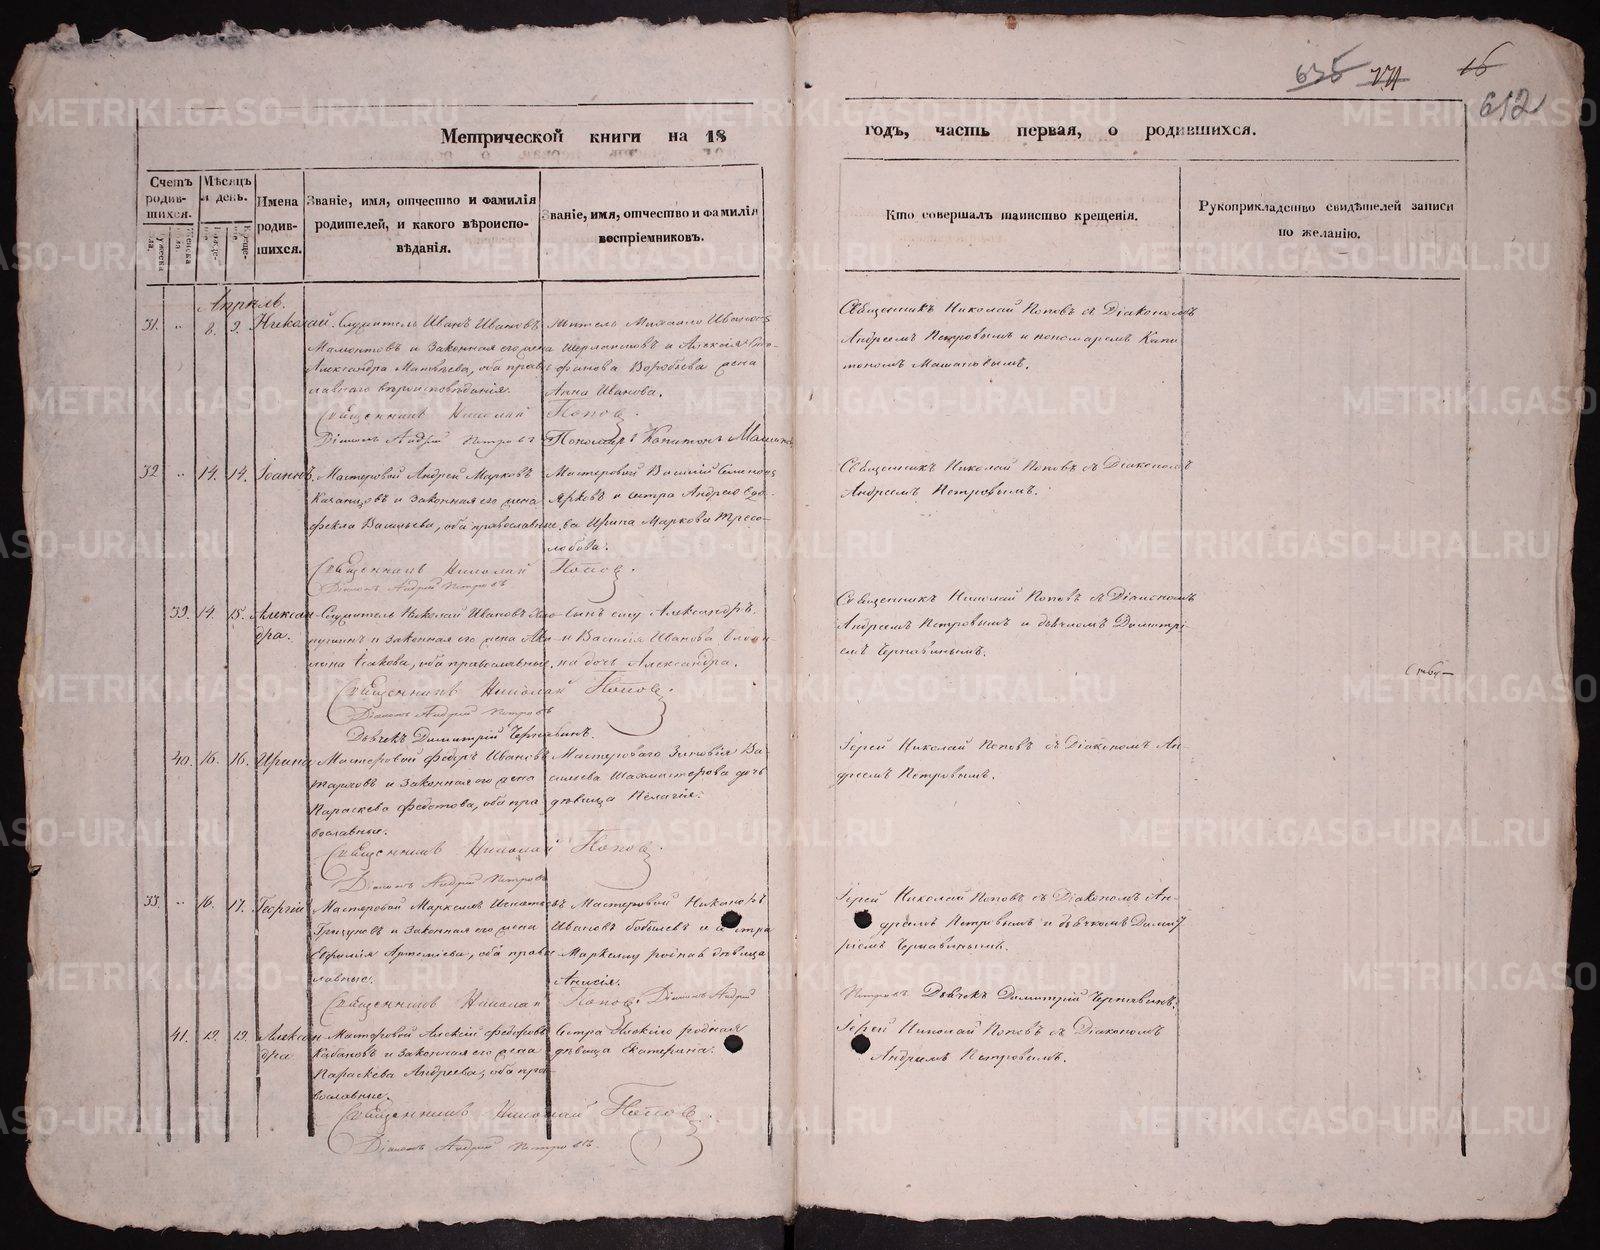 675 771 16
612
Метрической книги на 18
годъ, часть первая, о родившихся.
Счетъ родив-шихся.
Мѣсяцъ и день.
Имена родив-шихся.
Званіе, имя, отчество и фамилія родителей, и какого вѣроиспо-вѣданія.
Званіе, имя, отчество и фамилія воспріемниковъ.
Кто совершалъ таинство крещенія.
Рукоприкладство свидѣтелей записи по желанію.
Апрѣль.
31. " 8. 9. Николай.
Служитель Иванъ Ивановъ
Мамонтовъ и законная его жена
Александра Матвѣева, оба право
славнаго вѣроисповѣданія.
Житель Михаило Ивановъ
и Алексія
фанова Воробьева жена
Анна Иванова.
Священникъ Николай Поповъ съ Діакономъ
Андреемъ Петровымъ и пономаремъ Капи
тономъ Машановымъ.
Священникъ Николай Поповъ.
Діаконъ Андрей Петровъ Пономарь Капитонъ
32. " 14. 14. Іоаннъ.
Мастеровой Андрей Марковъ
и законная его жена
Фекла Васильева, оба православные,
Мастеровой Василій Семеновъ
Ярковъ и сестра Андрею
ва Ирина Маркова Трясо-
лобова.
Священникъ Николай Поповъ съ Діакономъ
Андреемъ Петровымъ.
Священникъ Николай Поповъ.
Діаконъ Андрей Петровъ
39. 14. 15. Алексан-
дра.
Служитель Николай Ивановъ
и законная его жена Аку-
лина Исакова, оба православные.
сынъ ему Александръ
и Василія Иванова
на дочь Александра.
Священникъ Николай Поповъ съ Діакономъ
Андреемъ Петровымъ и дьячкомъ Димитрі-
емъ Чернавинымъ.
Священникъ Николай Поповъ.
Діаконъ Андрей Петровъ
Дьячекъ Димитрій Чернавинъ.
40. 16. 16. Ирина
Мастеровой Федоръ Ивановъ
и законная его жена
Параскева Федотова, оба пра-
вославные.
Мастероваго Зиновія Ва-
сильева Шахмистерова дочь
дѣвица Пелагія.
Іерей Николай Поповъ съ Діакономъ Ан-
дреемъ Петровымъ.
Священникъ Николай Поповъ.
Діаконъ Андрей Петровъ
33. " 16. 17. Георгій
Мастеровой Маркелъ Игнатьевъ
и законная его жена
Евфимія Артеміева, оба право
славные.
Мастеровой Никаноръ
Ивановъ Бобылевъ и сестра
Маркелу родная дѣвица
Анисія.
Іерей Николай Поповъ съ Діакономъ Ан-
дреемъ Петровымъ и дьячкомъ Димит
ріемъ Чернавинымъ.
Священникъ Николай Поповъ. Діаконъ Андрей
Петровъ Дьячекъ Димитрій Чернавинъ.
41. 19. 19. Алексан-
дра
Мастеровой Алексій Федоровъ
Кабановъ и законная его жена
Параскева Андреева, оба пра-
вославные.
Сестра Алексію родная
дѣвица Екатерина.
Іерей Николай Поповъ съ Діакономъ
Андреемъ Петровымъ.
Священникъ Николай Поповъ.
Діаконъ Андрей Петровъ.
METRIKI.GASO-URAL.RU